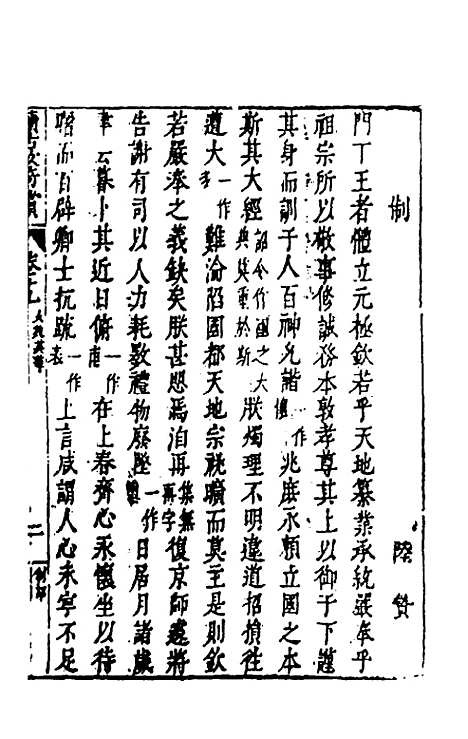 制
陸贄
門下王者體立元極欽若乎天地纂業承統嚴奉乎
祖宗所以敬事修誠務本敦孝尊其上以御于下謹
其身而訓于人百神允諧一作兆庶永賴立國之本
斯其大經詔令作國之大典莫重於斯朕燭理不明違道招損往
遵大一作難淪陷國都天地宗祧曠而莫主是則欽
若嚴奉之義缺矣朕甚恧焉洎再集無再字復京師遽將
告謝有司以人力耗斁禮物廢墜一作日居月諸歲
聿云暮卜其近日俯一作在上春齊心永懷坐以待
晤而百辟卿士抗疏一作表上言咸謂人心未寧不足